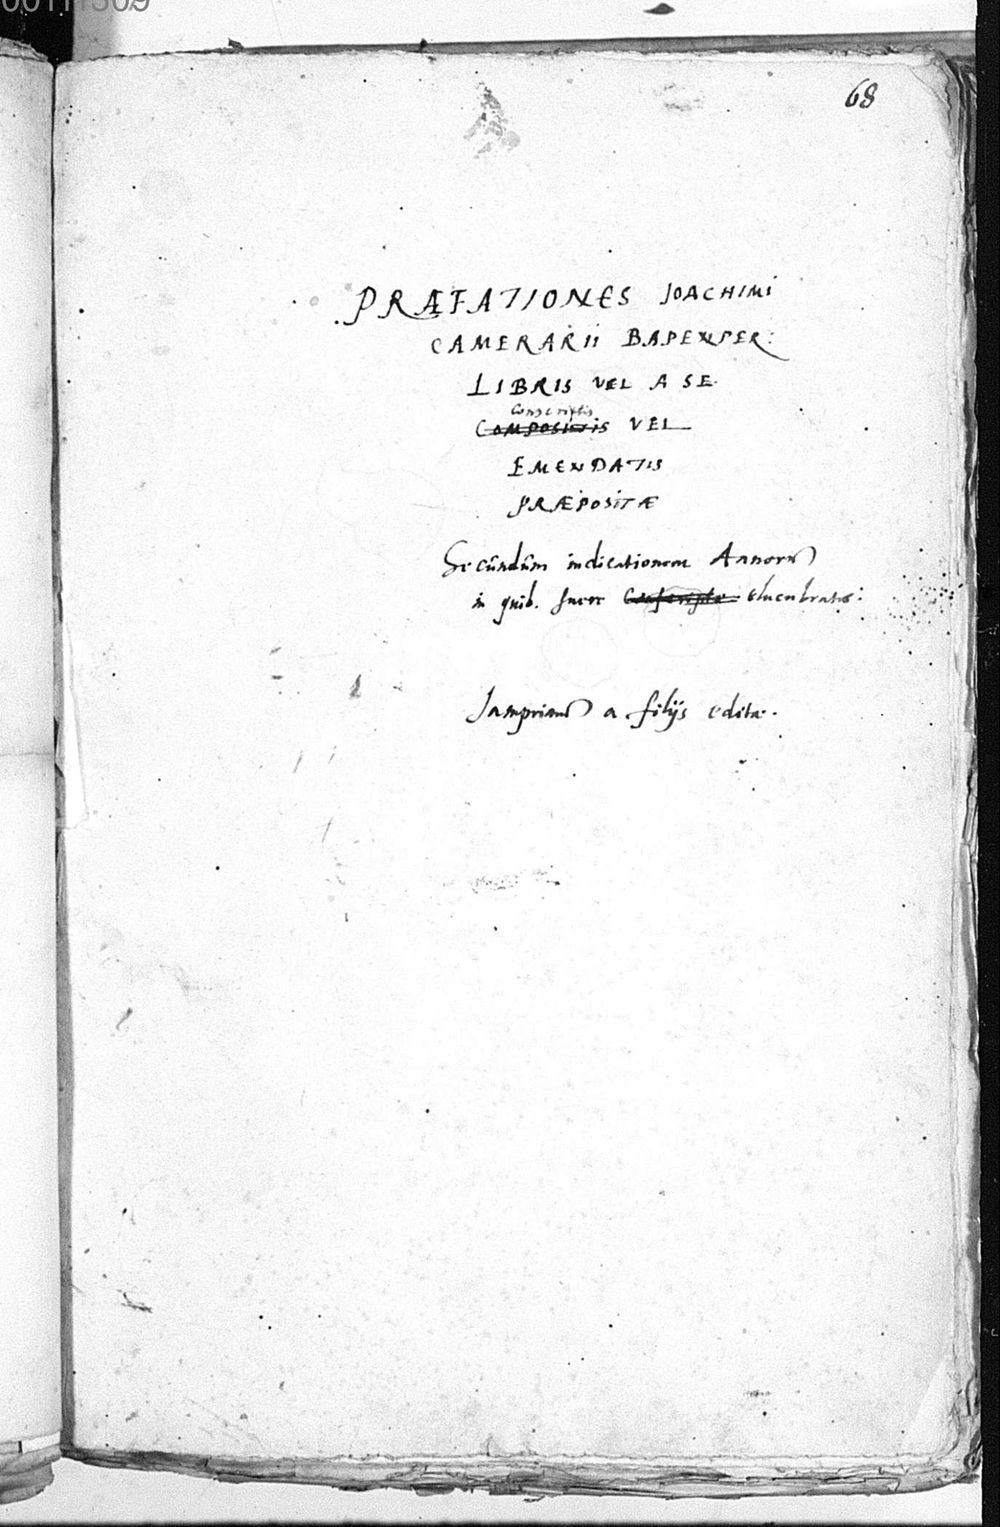 00111309
68
PRÆFATIONES IOACHIMI
CAMERARII BAPENPER:
LIBRIS VEL A SE
Conscriptis
Compositis VEL
EMENDATIS
PRÆPOSITÆ
Secundum indicationem Annorū
in quib. fuere Conscriptæ elucubratæ:
Jamprimū a filijs editæ.